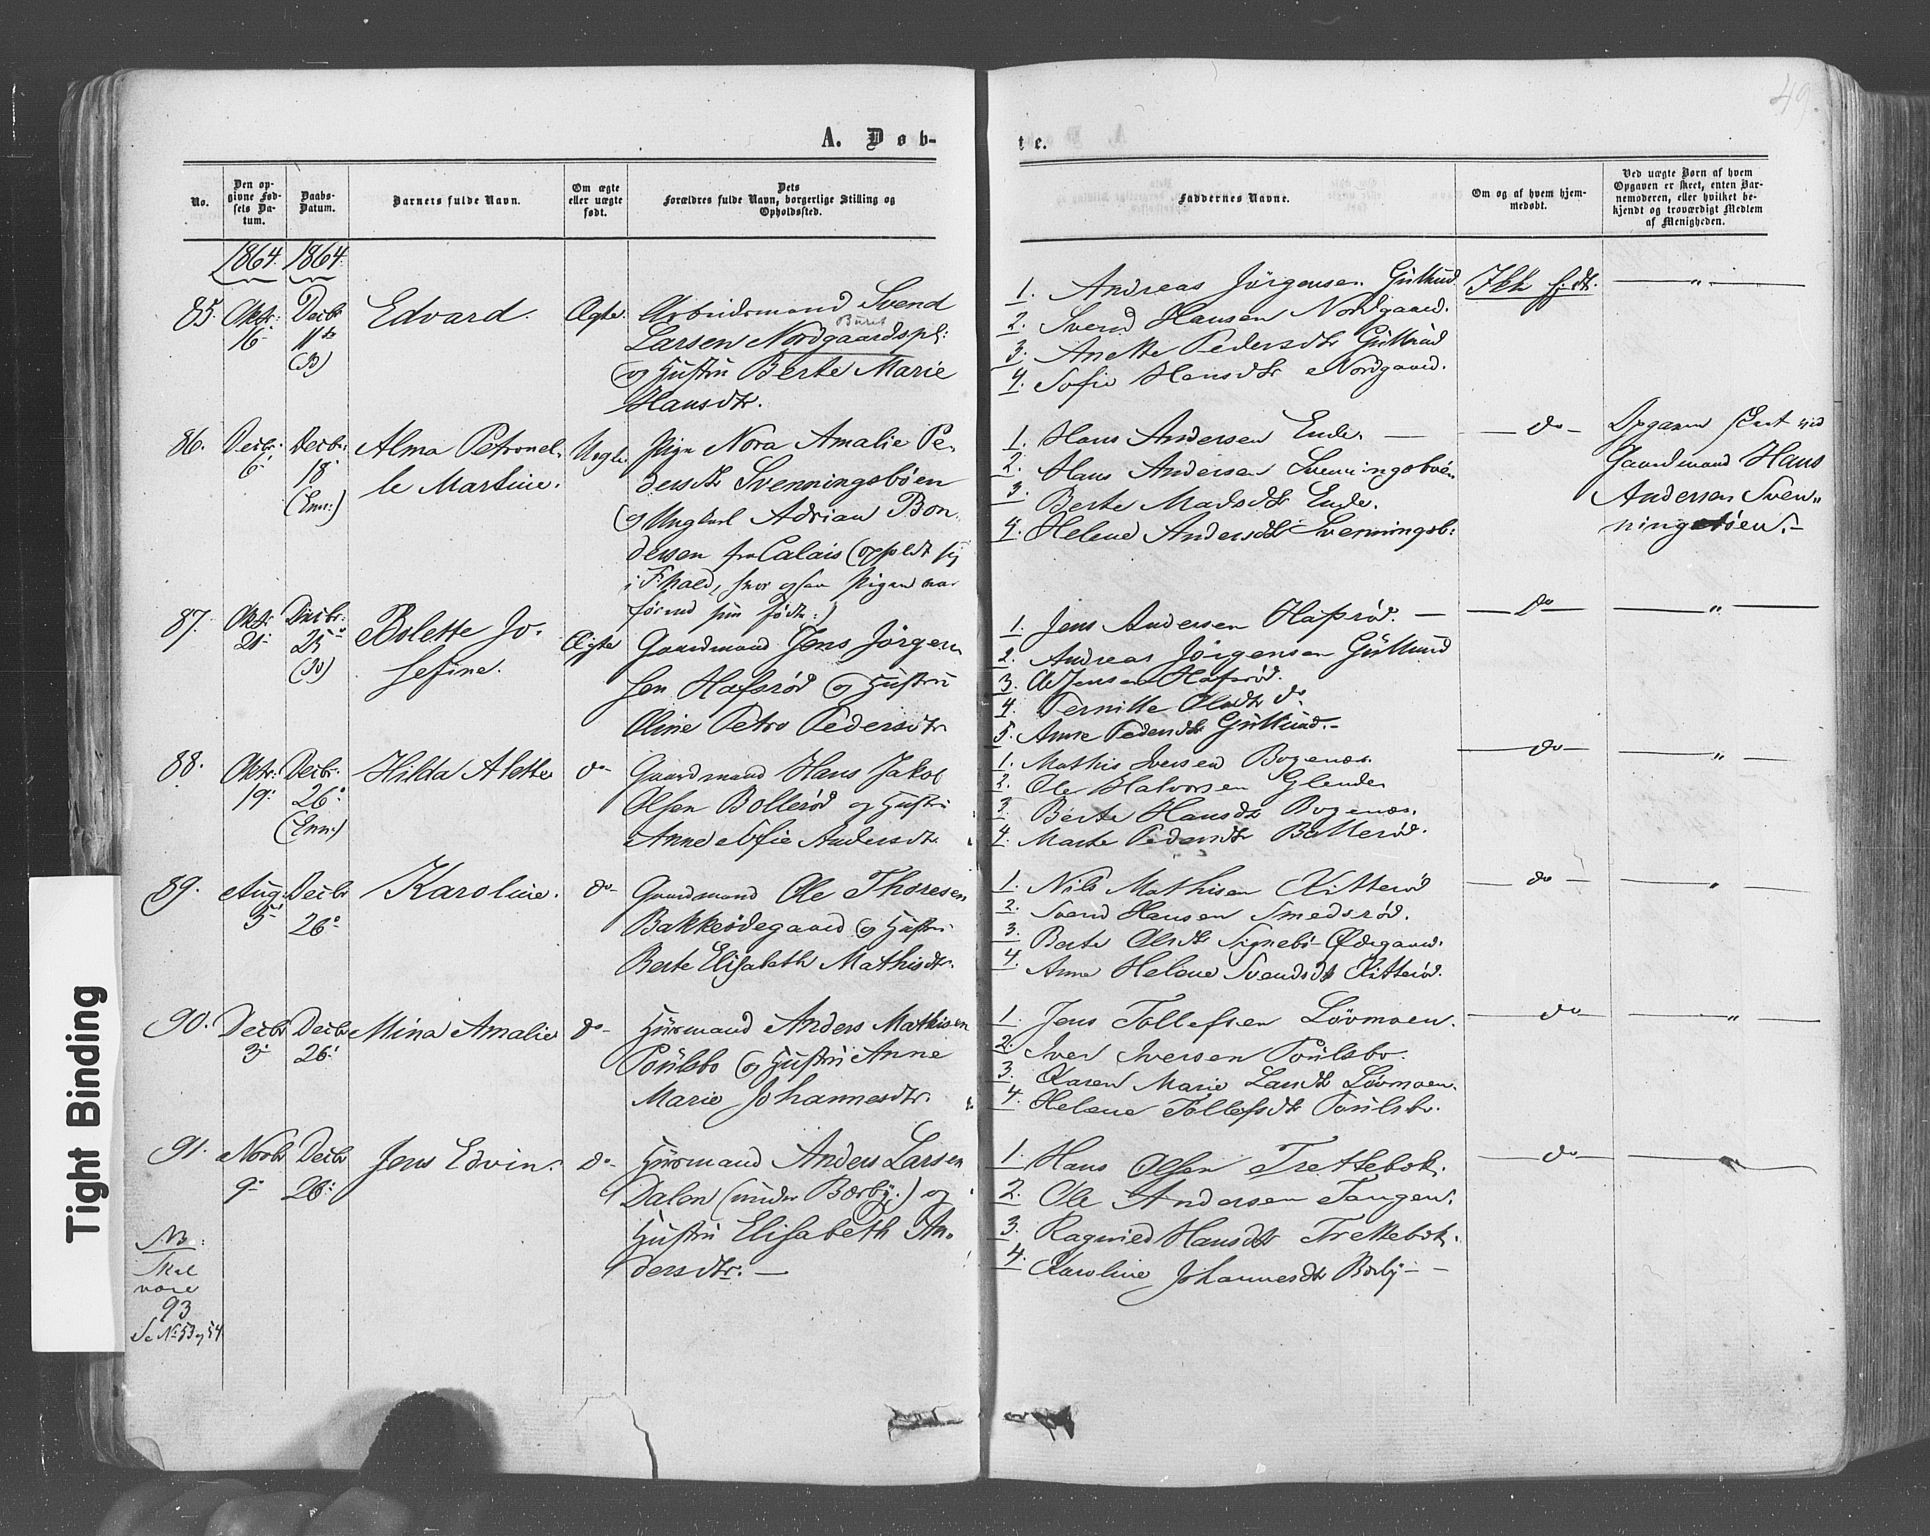 49
A. Døb-
te.
No.
Den op-
givne Fød-
sels Da-
tum.
Daabs-
Datum.
Barnets fulde Navn.
Om ægte
eller uægte
født.
Dets
Forældres fulde Navn, borgerlige Stilling og
Opholdssted.
Faddernes Navne.
Om og af hvem hjem-
medøbt.
Ved uægte Børn af hvem
Opgaven er skeet, enten Bar-
nemoderen, eller hvilket be-
kjendt og troværdigt Medlem
af Menigheden.
1864. 1864.
85. Oktr: 16 Decbr 11te (Id) Edvard. Ægte.
Arbeidsmand Svend
Larsen Nordgaardspl:
og Hustru Berte Marie
Hansdtr.
1. Andreas Jørgensen Gullund
2. Svend Hansen Nordgaard.
3. Anette Pedersdtr Gullund
4. Sofie Hansdtr Nordgaard.
Ikk hjdt. — " —
86. Decbr: 6 Decbr: 18 (Enn:) Alma Petronel-
le Martine. Uægte.
Pige Nora Amalie Pe-
dersdtr Svenningsbøen
og Ungkarl Adrian Bon-
dessen fra Calais (opholdt sig
i F:hald, hvor ogsaa Pigen var
før ved sin Fødte:)
1. Hans Andersen Ende. —
2. Hans Andersen Svenningsbøen
3. Berte Madsdtr Ende.
4. Helene Andersdtr Svenningsb:
— do —
Opgaven skeet ved
Gaardmand Hans
Andersen Sven-
ningsbøen. -
87. Oktr 21 Decbr: 25 (Id) Bolette Jo-
sefine. Ægte
Gaardmand Jens Jørgen-
sen Hafsrød og Hustru
Oline Petro Pedersdtr
1. Jens Andersen Hafsrød. —
2. Andreas Jørgensen Gullund
3. Jensen Hafsrød.
4. Pernille Olsdtr do
5. Anne Pedersdtr Gullund. -
— do — — " —
88. Oktr: 19 Decbr: 26 (Enn:) Hilda Alette do-
Gaardmand Hans Jakob
Olsen Bollerød og Hustru
Anne Sofie Andersdtr.
1. Mathis Iversen Bogenæs.
2. Ole Halvorsen Glende.
3. Berte Hansdtr Bogenæs.
4. Marte Pedersdtr Bollerød.
— do — — " —
89. Aug: 5 Decbr 26 Karoline. do-
Gaardmand Ole Thoresen
Bakkeødegaard og Hustru
Berte Elisabeth Mathisdtr.
1. Nils Mathisen Kitterød
2. Svend Hansen Smedsrød.
3. Berte Olsdtr Signebø-Ødegaard.
4. Anne Helene Svendsdtr Kitterød.
— do — — " —
90. Decbr 3 Decbr 26 Mina Amalie do-
Husmand Anders Mathisen
Poulsbo og Hustru Anne
Marie Johannesdtr.
1. Jens Tollefsen Løvmoen.
2. Iver Iversen Poulsbo.
3. Karen Marie Larsdtr Løvmoen.
4. Helene Tollefsdtr Poulsbo.
— do — — " —
91. Novbr 9 Decbr 26 Jens Edvin. do-
Husmand Anders Larsen
Dalen (under Bærby.) og
Hustru Elisabeth An-
dersdtr. —
1. Hans Olsen Trettebak.
2. Ole Andersen Tangen.
3. Ragnild Hansdtr Trettebak.
4. Karoline Johannesdtr Bærby -
— do —
NB:
Skal
være
93
Se No 53 og 54
Tight Binding